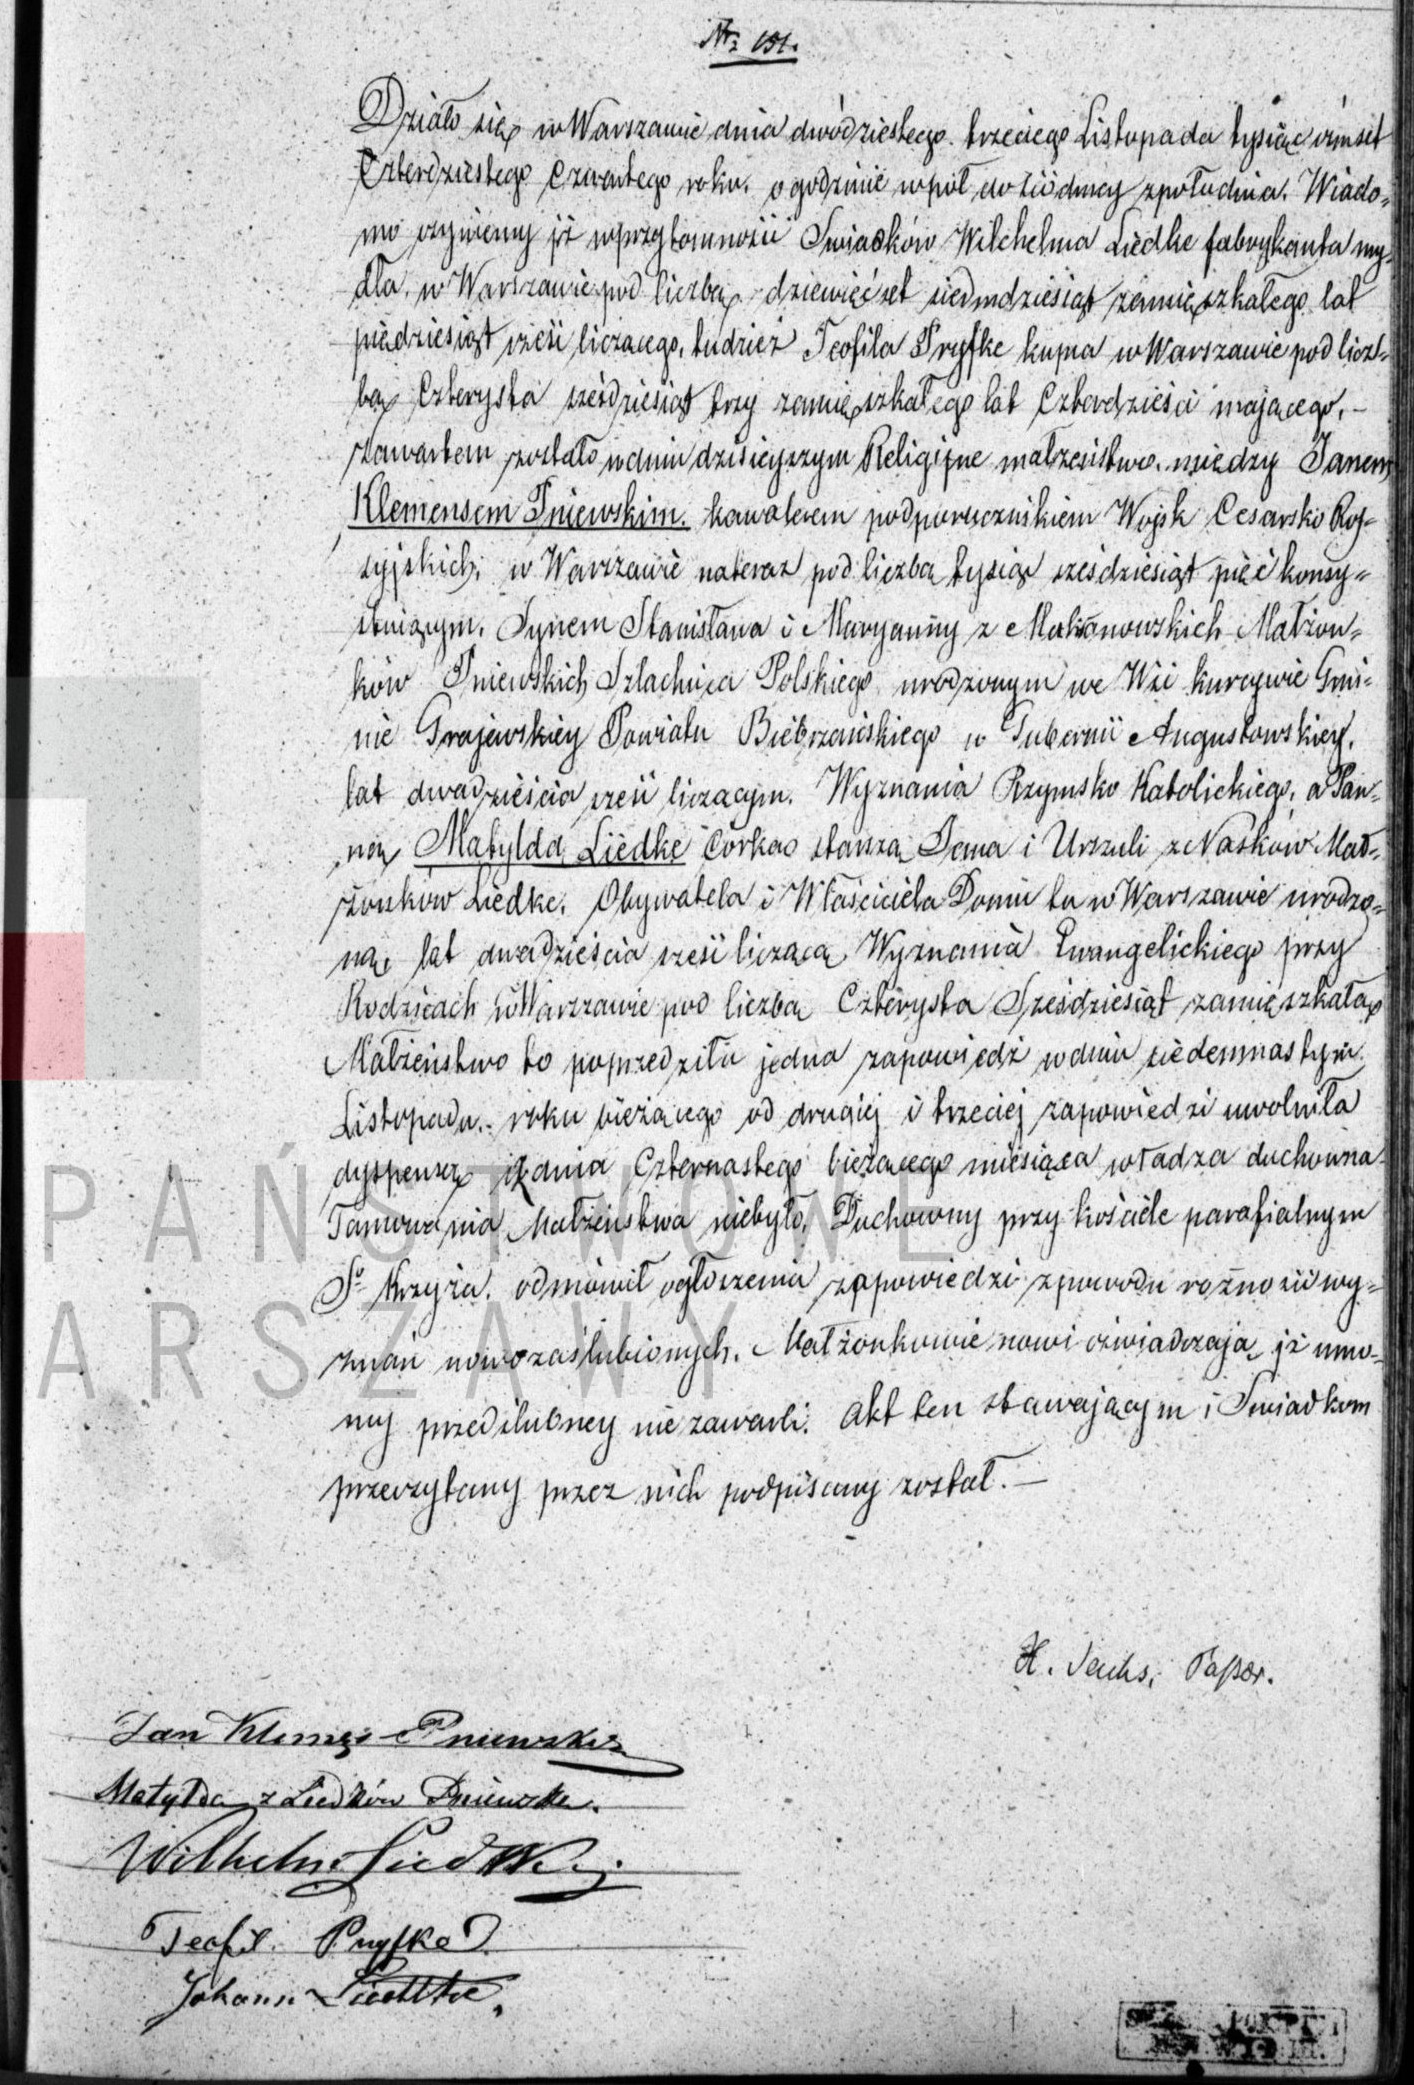 Nr 191.
Działo się w Warszawie dnia dwódziestego trzeciego Listopada tysiąc ośmset
Czterdziestego Czwartego roku. o godzinie wpół do siódmey zpołudnia. Wiado-
mo czyniemy iż wprzytomności Swiadków Wilchelma Liedke fabrykanta my-
dła, w Warszawie pod liczbą dziewięćset siedmdziesiąt zamieszkałego lat
pięćdziesiąt sześć liczącego, tudzież Teofila Pryfke kupca w Warszawie pod licz-
bą Czterysta sześdziesiąt trzy zamięszkałego lat Czterdzieści mającego. —
zawartem zostało wdniu dzisieyszym Religijne małżeństwo między Janem
Klemensem Pniewskim. kawalerem podporucznikiem Wojsk Cesarsko Ros-
syjskich, w Warszawie nateraz pod liczbą tysiąc sześdziesiąt pięć konsy-
stującym. Synem Stanisława i Maryanny z Makanowskich Małżon-
ków Pniewskich Szlachcica Polskiego urodzonym we Wsi kurczwie Gmi-
nie Grajewskiey Powiatu Biebrzańskiego w Gubernii Augustowskiey.
lat dwadzieścia sześć liczącym. Wyznania Rzymsko Katolickiego, a Pan-
ną Matyldą Liedke Corką starszą Jana i Urszuli z Nasków Mał-
żonków Liedke. Obywatela i Właściciela Domu tu w Warszawie urodzo-
ną lat dwadzieścia sześć liczącą Wyznania Ewangelickiego przy
Rodzicach w Warszawie pod liczbą Czterysta Sześdziesiąt zamięszkałą
Małżeństwo to poprzedziła jedna zapowiedź w dniu siedemnastym
Listopada. roku bieżącego od drugiej i trzeciej zapowiedzi uwolniła
dyspensą z dnia Czternastego bieżącego miesiąca władza duchowna
Tamowania Małżeństwa niebyło, Duchowny przy kościele parafialnym
So Krzyża. odmówił ogłoszenia zapowiedzi zpowodu rożności wy-
znań nowozaślubionych. Małżonkowie nowi oświadczają iż umo-
my przedślubney nie zawarli. Akt ten stawającym i Swiadkom
przeczytany przez nich podpisany został. —
H. Sachs, Pastor.
Jan Klemens Pniewski
Matylda z Liedków Pniewska.
Wilhelm Liedtke
Teofil Pryfke
Johann Liedtke.
PAŃSTWOWE
ARSZAWY